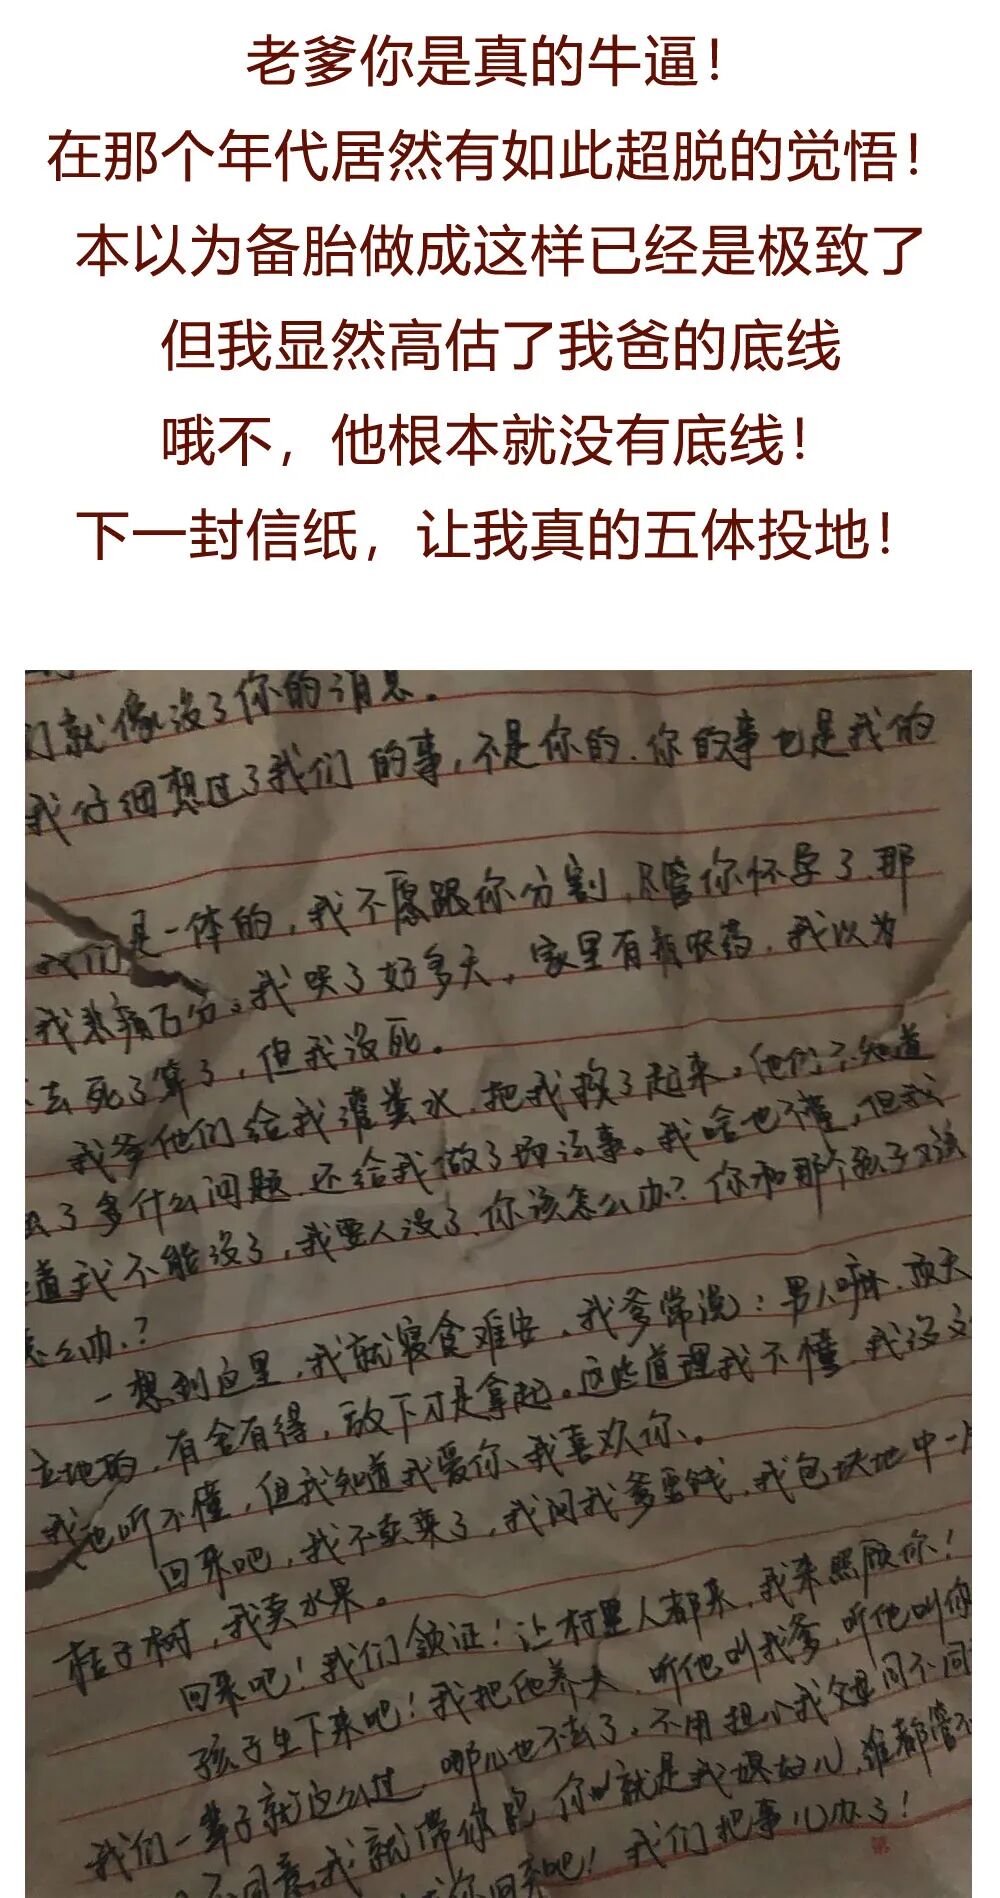 老爹你是真的牛逼！
在那个年代居然有如此超脱的觉悟！
本以为备胎做成这样已经是极致了
但我显然高估了我爸的底线
哦不，他根本就没有底线！
下一封信纸，让我真的五体投地！
们就像没了你的消息。
我仔细想过了我们的事，不是你的.你的事也是我的
我们是一体的，我不愿跟你分割，尽管你怀孕了.那
我哭了好多天，家里有瓶农药，我以为
去死了算了，但我没死。
我爹他们给我灌粪水.把我救了起来。他们不知道
了多什么问题.还给我做了场法事。我啥也不懂，但我
道我不能没了，我要人没了.你该怎么办？你和那个孩子又该
怎么办？
一想到这里，我就寝食难安，我爹常说：男人嘛.顶天
立地的，有舍有得，放下才是拿起。这些道理我不懂.我没文
我也听不懂，但我知道我爱你、我喜欢你、。
回来吧，我不卖菜了，我问我爹要钱，我包块地中一片
桔子树，我卖水果。
回来吧！我们领证！让村里人都来，我来照顾你！
孩子生下来吧！我把他养大，听他叫我爹，听他叫你
我们一辈子就这么过，哪儿也不去了，不用担心我父母同不同
不同意.我就带你跑 你就是我媳妇儿，谁都管不
你回来吧！我们把事儿办了！